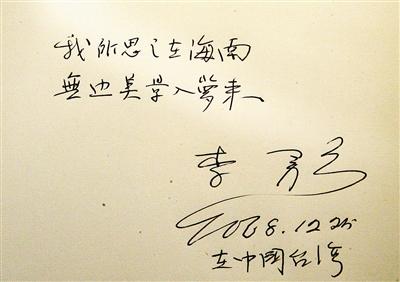 我所思之在海南
無边美景入夢来
李
2008.12.25
在中國台湾